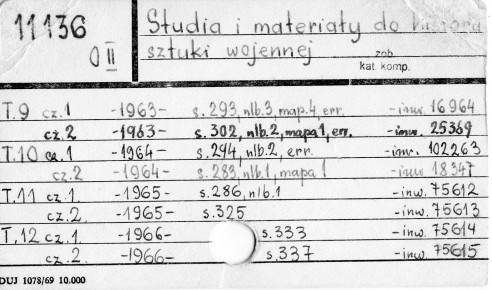 11136
O II
Studia i materiały do historii
sztuki wojennej
zob.
kat. komp.
T.9 cz.1 -1963- s.293, nlb.3, map.4, err. -inw. 16964
cz.2 -1963- s.302, nlb.2, mapa 1, err. -inw. 25369
T.10 cz.1 -1964- s.294, nlb.2, err. -inw. 102263
cz.2 -1964- s.283, nlb.1, mapa 1 -inw 18347
T.11 cz.1. -1965- s.286, nlb.1 -inw. 75612
cz.2. -1965- s.325 -inw. 75613
T.12 cz.1. -1966- s.333 -inw. 75614
cz.2. -1966- s.337 -inw. 75615
DUJ 1078/69 10.000